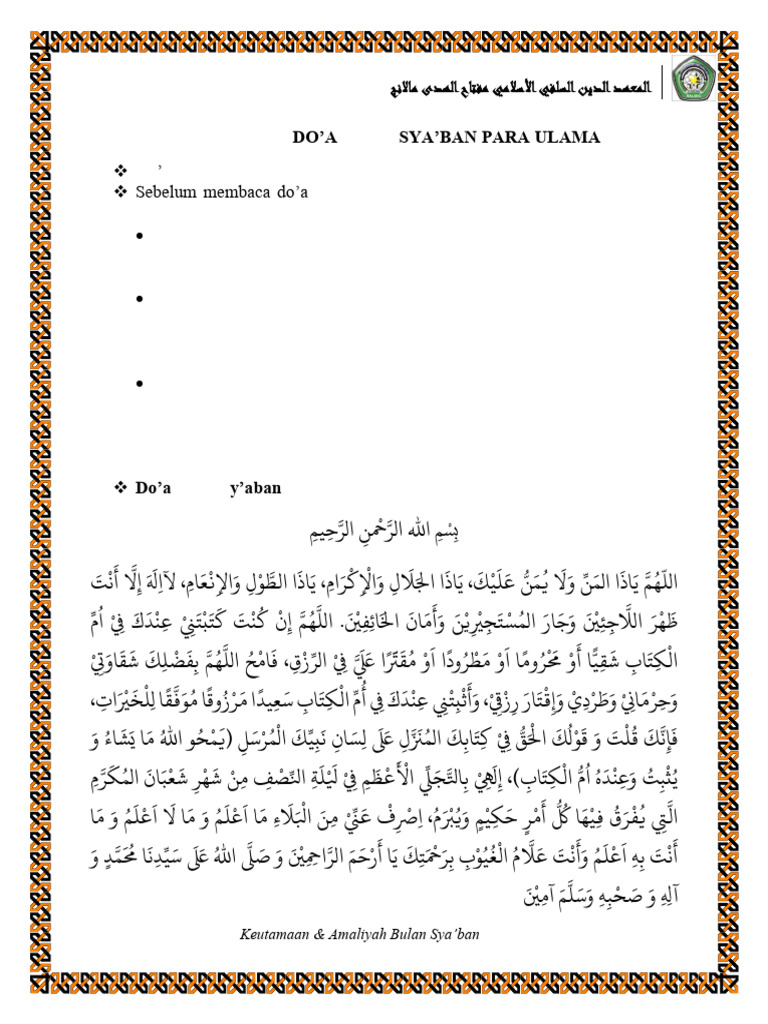 المعهد الدين السلفي الأسلامي مفتاح الهدى مالانج
DO’A SYA’BAN PARA ULAMA
❖ ’
❖ Sebelum membaca do’a
•
•
•
❖ Do’a y’aban
بِسْمِ الله الرَّحْمنِ الرَّحِيمِ
اللّهُمَّ يَاذَا المَنِّ وَلَا يُمَنُّ عَلَيْكَ، يَاذَا الجَلَالِ وَالْإِكْرَامِ، يَاذَا الطَّوْلِ وَالإِنْعَامِ، لآاِلَهَ إِلَّا أَنْتَ
ظَهْرَ اللَّاجِئِيْنَ وَجَارَ المُسْتَجِيْرِيْنَ وَأَمَانَ الخَائِفِيْنَ. اللَّهُمَّ إِنْ كُنْتَ كَتَبْتَنِيْ عِنْدَكَ فِيْ اُمِّ
الْكِتَابِ شَقِيًّا أَوْ مَحْرُومًا اَوْ مَطْرُودًا اَوْ مُقَتَّرًا عَلَيَّ فِيْ الرِّزْقِ، فَامْحُ اللَّهُمَّ بِفَضْلِكَ شَقَاوَتِيْ
وَحِرْمَانِيْ وَطَرْدِيْ وَإِقْتَارَ رِزْقِيْ، وَأَثْبِتْنِي عِنْدَكَ فِي أُمِّ الْكِتَابِ سَعِيدًا مَرْزُوقًا مُوَفَّقًا لِلْخَيْرَاتِ،
فَإِنَّكَ قُلْتَ وَ قَوْلُكَ الْحَقُّ فِيْ كِتَابِكَ المُنَزَّلِ عَلَى لِسَانِ نَبِيِّكَ الْمُرْسَلِ (يَمْحُو اللهُ مَا يَشَاءُ وَ
يُثْبِتُ وَعِنْدَهُ اُمُّ الْكِتَابِ)، إِلَهِيْ بِالتَّجَلِّي الْأَعْظَمِ فِيْ لَيْلَةِ النِّصْفِ مِنْ شَهْرِ شَعْبَانَ المُكَرَّمِ
الَّتِي يُفْرَقُ فِيْهَا كُلُّ أَمْرٍ حَكِيْمٍ وَيُبْرَمُ، اِصْرِفْ عَنِّيْ مِنَ الْبَلَاءِ مَا اَعْلَمُ وَ مَا لَا اَعْلَمُ وَ مَا
أَنْتَ بِهِ اَعْلَمُ وَأَنْتَ عَلَّامُ الْغُيُوْبِ بِرَحْمَتِكَ يَا أَرْحَمَ الرَّاحِمِيْنَ وَ صَلَّى اللهُ عَلَى سَيِّدِنَا مُحَمَّدٍ وَ
آلِهِ وَ صَحْبِهِ وَسَلَّمَ آمِيْنَ
Keutamaan & Amaliyah Bulan Sya’ban